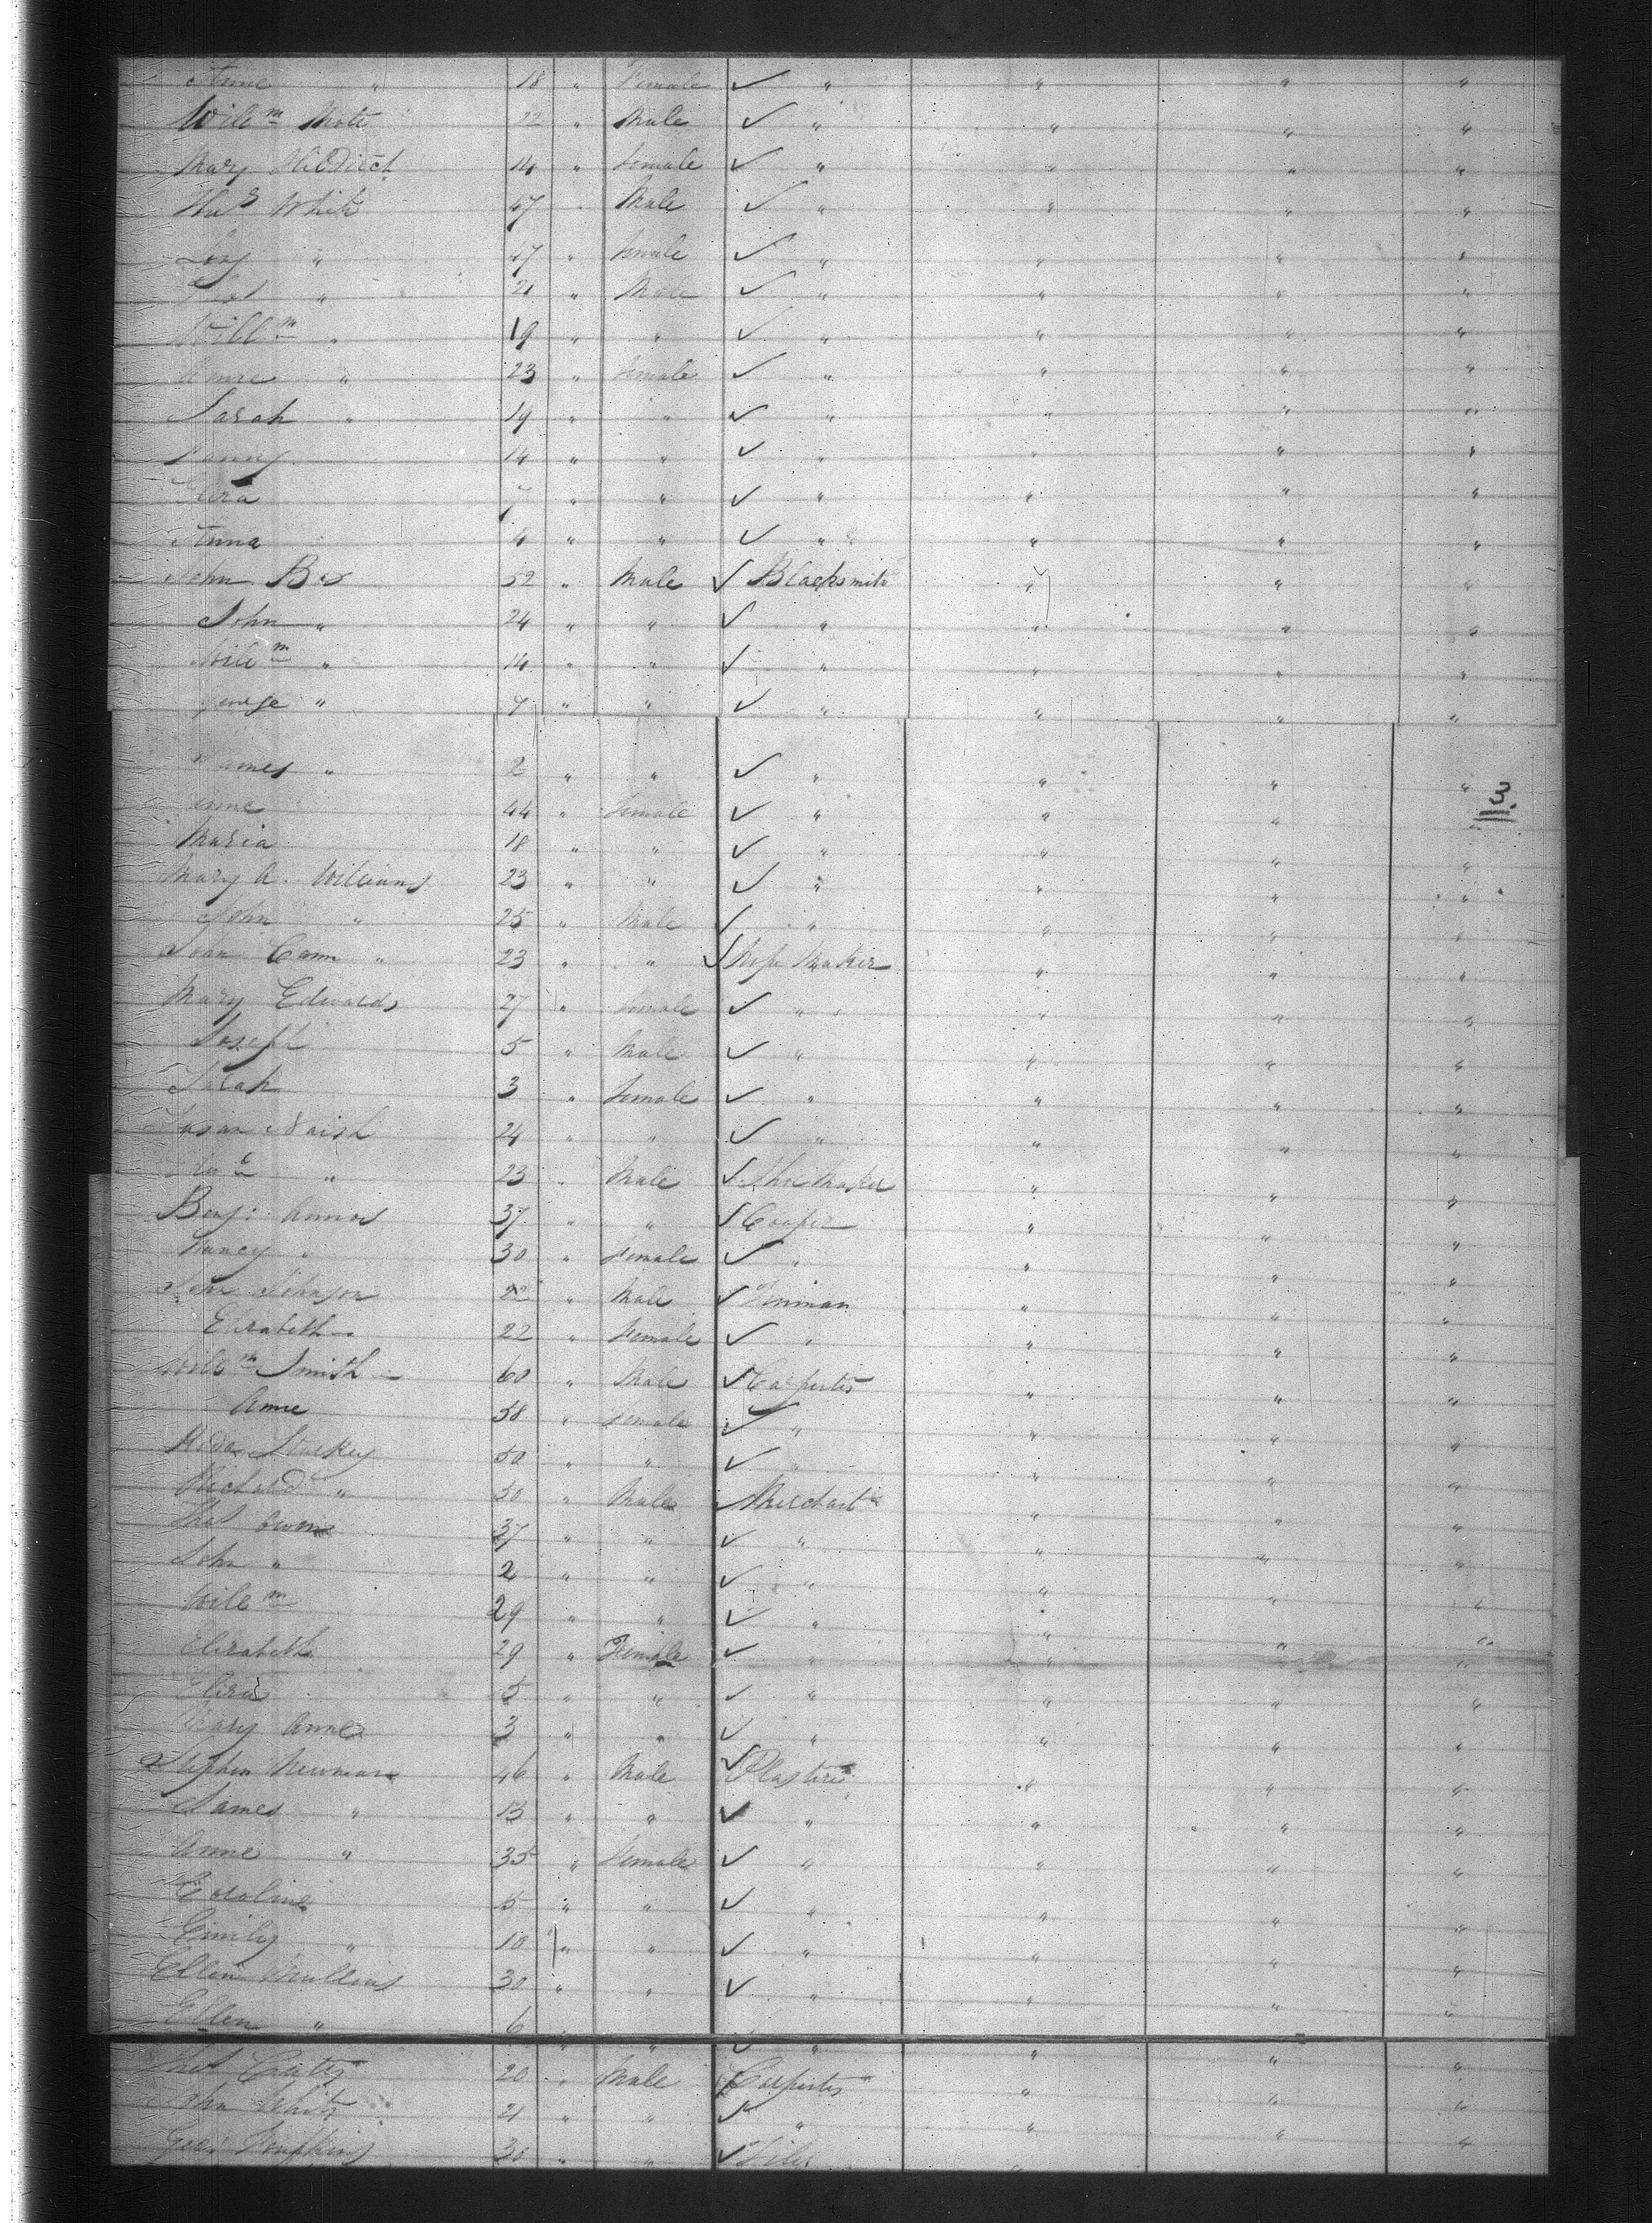 Anne " 18 " Female ✓ " " " "
Will^m Mote 22 " Male ✓ " " " "
Mary Hilditch 14 " Female ✓ " " " "
Tho^s White 47 " Male ✓ " " " "
" 47 " Female ✓ " " " "
" 21 " Male ✓ " " " "
Will^m " 19 " " ✓ " " " "
Anne " 23 " Female ✓ " " " "
Sarah " 19 " " ✓ " " " "
14 " " ✓ " " " "
7 " " ✓ " " " "
Anna 4 " " ✓ " " " "
John Box 52 " Male ✓ Blacksmith " " "
John " 24 " " ✓ " " " "
Will^m " 14 " " ✓ " " " "
George " 7 " " ✓ " " " "
James " 2 " " ✓ " " " "
3.
Anne 44 " Female ✓ " " " "
Maria 18 " " ✓ " " " "
Mary A. Williams 23 " " ✓ " " " "
John " 25 " Male ✓ " " " "
Cann " 23 " " ✓ Rope Maker " " "
Mary Edwards 27 " Female ✓ " " " "
Joseph 5 " Male ✓ " " " "
Sarah 3 " Female ✓ " " " "
Susan Naish 24 " " ✓ " " " "
" 23 " Male ✓ Shoe Maker " " "
Benj: Amos 37 " " ✓ Cooper " " "
Nancy " 30 " Female ✓ " " " "
Johnson 22 " Male ✓ Tinman " " "
Elizabeth 22 " Female ✓ " " " "
Will^m Smith 60 " Male ✓ Carpenter " " "
Anne 58 " Female ✓ " " " "
Stuckey 50 " " ✓ " " " "
Richard " 50 " Male ✓ Merchant " " "
Thos Owens 37 " " ✓ " " " "
John " 2 " " ✓ " " " "
Will^m 29 " " ✓ " " " "
Elizabeth 29 " Female ✓ " " " "
Eliza 5 " " ✓ " " " "
Mary Anne 3 " " ✓ " " " "
Stephen Newman 46 " Male ✓ Plasterer " " "
James " 13 " " ✓ " " " "
Anne " 35 " Female ✓ " " " "
Caroline 5 " " ✓ " " " "
Emily " 10 " " ✓ " " " "
Ellen Mullins 30 " " ✓ " " " "
Ellen " 6 " " ✓ " " " "
20 " Male Carpenter " " "
John White 21 " " ✓ " " " "
Geo: Tompkins 30 " " ✓ "